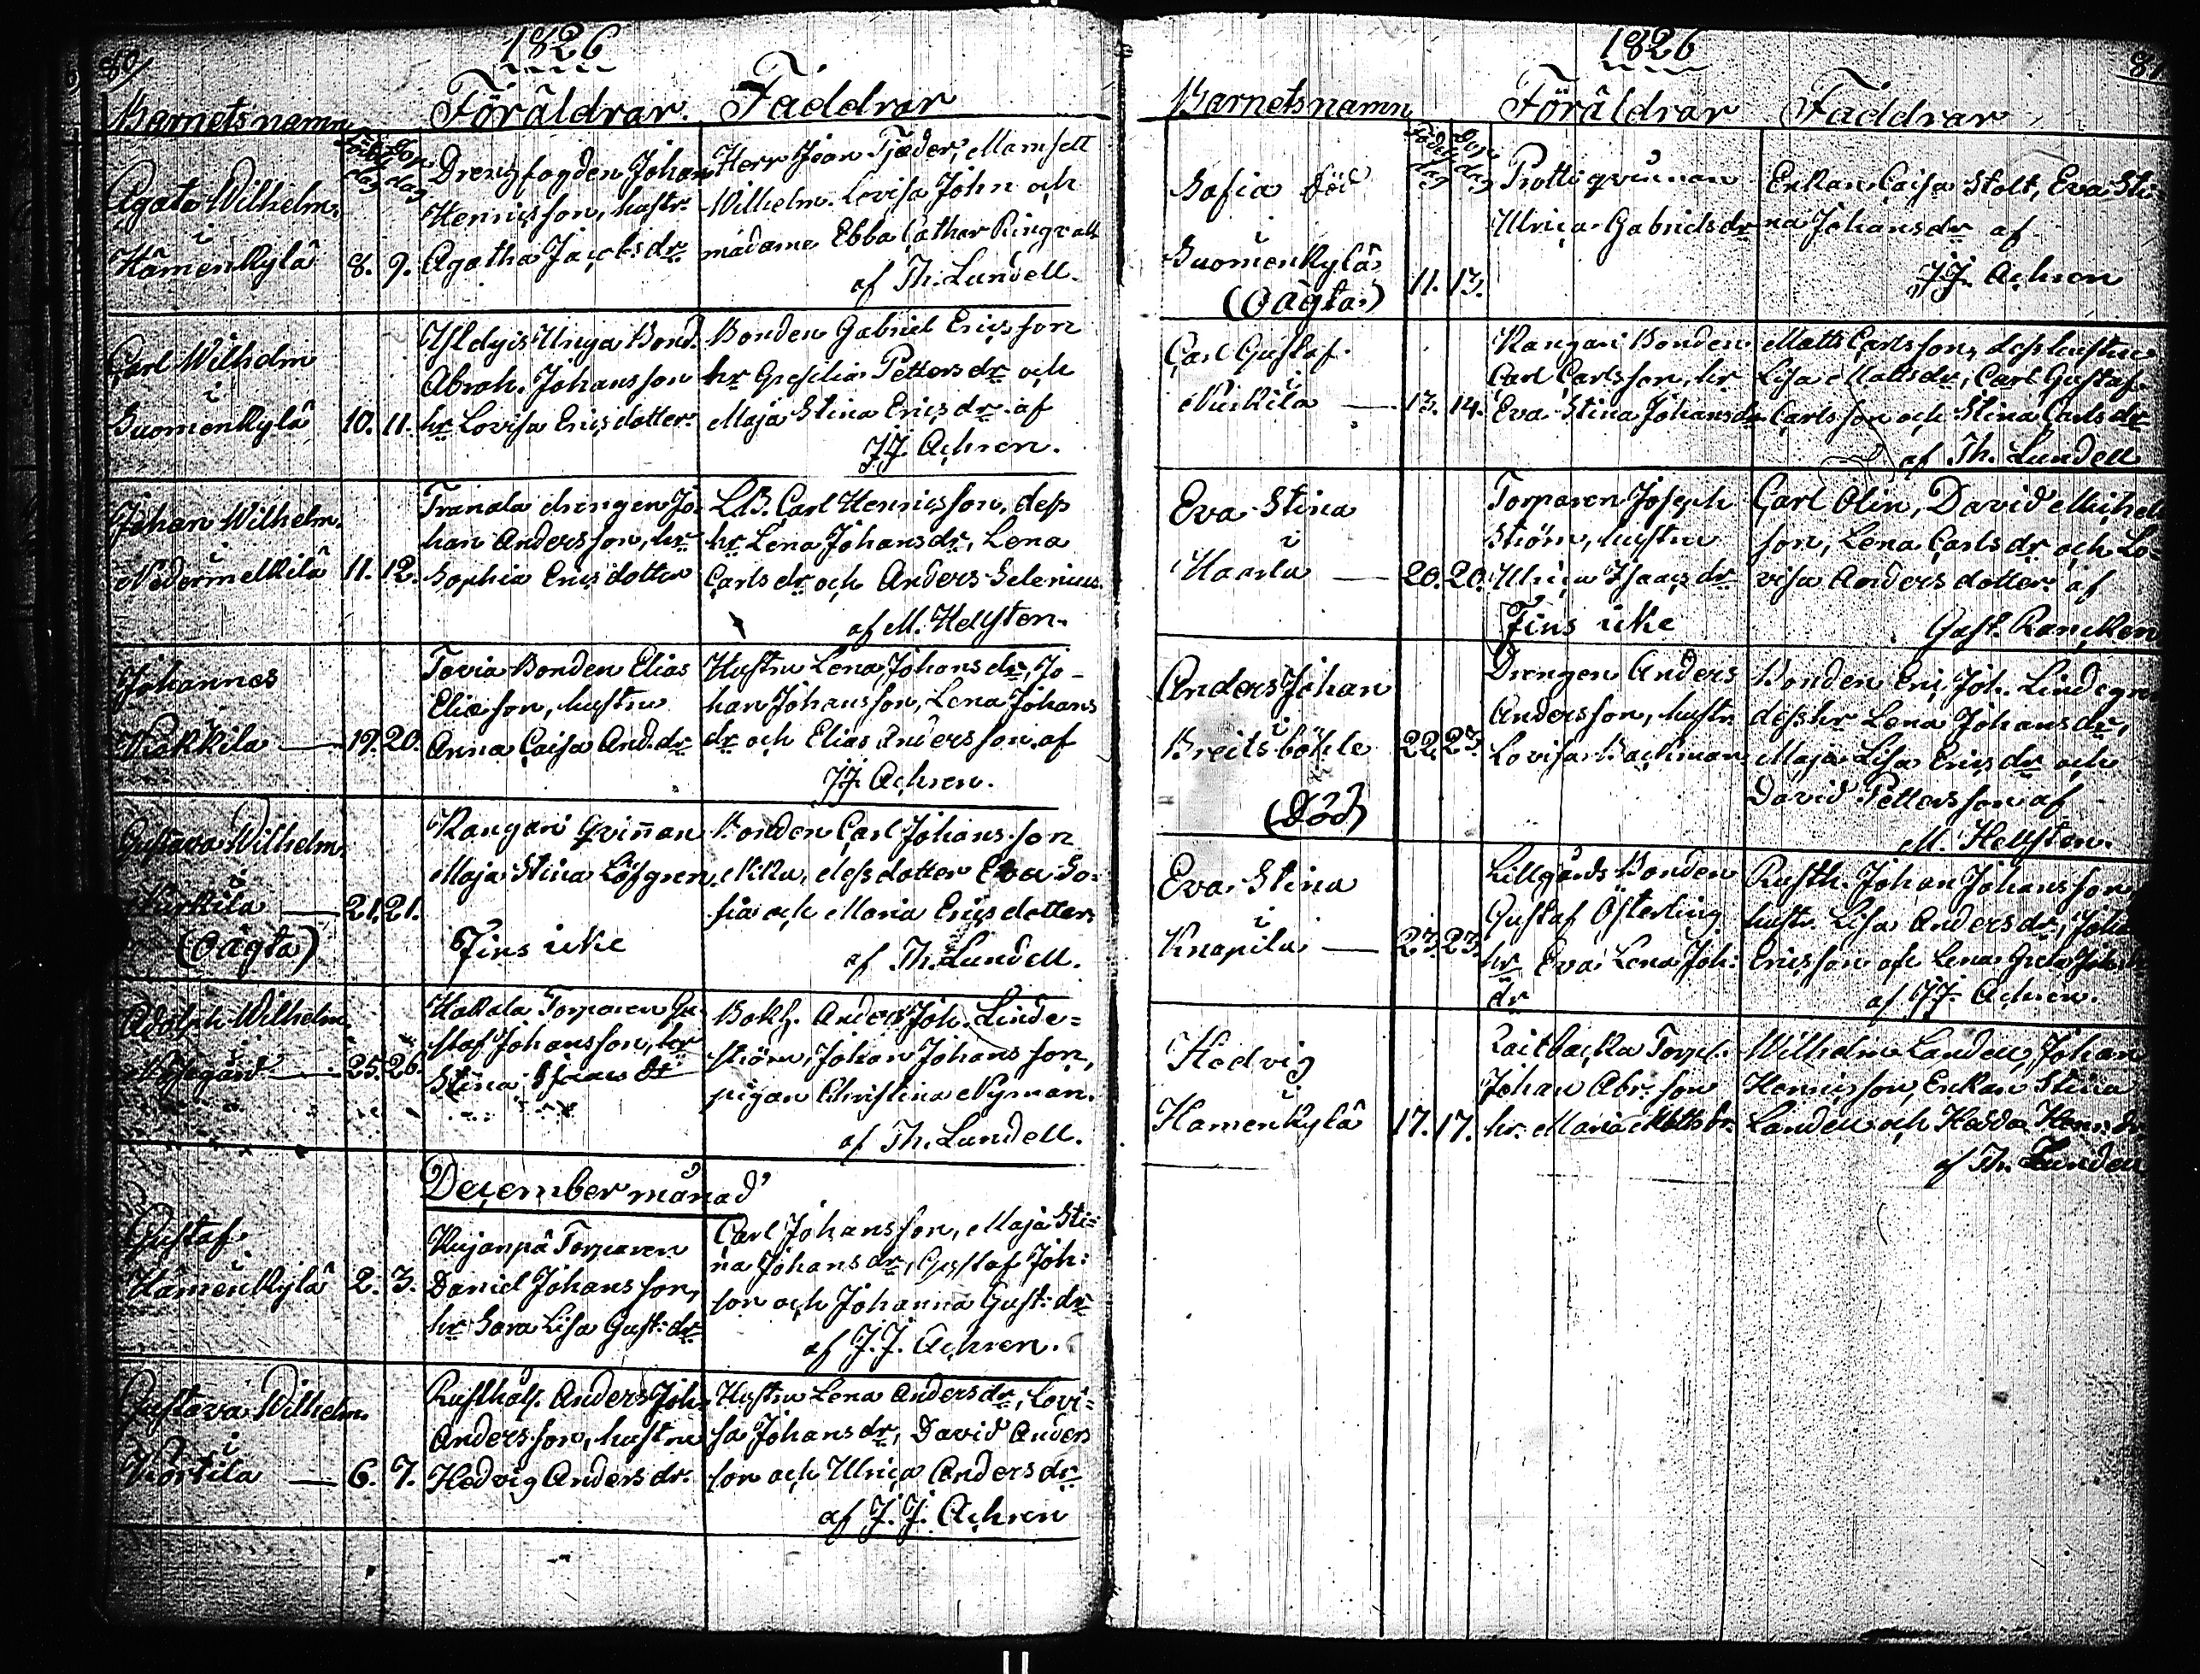 80/
1826
Barnets namn
Född dag
Döp. dag
Föräldrar
Faddrar
Agata Wilhelm.
i
Hämenkylä
8. 9.
Drengfogden Johan
Henricsson, hustr.
Agatha Jacobs dr
Herr Jean Tjäder, Mamsell
Wilhelm. Lovisa John och
madame Ebba Cathar Ringvall
af Th. Lundell.
Carl Wilhelm
i
Suomenkylä
10. 11.
Abrah. Johansson
hr Lovisa Ericsdotter
Bonden Gabriel Ericsson
hr Cecilia Petters dr och
Maja Stina Erics dr af
J.J. Achren.
Johan Wilhelm.
i
Nedermelkilä
11. 12.
Tranala drengen Jo-
han Andersson, hr
Sophia Ericsdotter
LB. Carl Henricsson, dess
hr Lena Johans dr, Lena
Carls dr och Anders Selenius.
af M. Hellsten.
Johannes
i
19. 20.
Tovia Bonden Elias
Eliæson, hustru
Anna Caisa And. dr
Hustru Lena Johans dr, Jo-
han Johansson, Lena Johans
dr och Elias Andersson af
J.J. Achren.
Gustava Wilhelm.
i
Kurkila
(Oägta)
21. 21.
Kangari Qvinnan
Maja Stina Löfgren
Fins icke
Bonden Carl Johansson
Mikku, dess dotter Eva So-
fia och Maria Ericsdotter
af Th. Lundell.
Adolph Wilhelm
i
25. 26.
Kakala Torparen Gu-
staf Johansson, hr
Stina Isaacs dr
Bokh. Anders Joh. Linde-
ström, Johan Johansson,
pigan Christina Nyman.
af Th. Lundell.
December månad
Gustaf
i
Hämenkylä
2. 3.
Kujanpä Torparen
Daniel Johansson,
hr Sara Lisa Gust. dr
Carl Johansson, Maja Sti-
na Johans dr, Gustaf Joh:
son och Johanna Gust: dr
af J.J. Achren.
Gustava Wilhelm.
i
Kortila
6. 7.
Rusthåll. Anders Joh.
Andersson, hustru
Hedvig Anders dr.
Hustru Lena Anders dr, Lovi-
sa Johans dr, David Anders
son och Ulrica Anders dr
af J.J. Achren
1826
81
Barnets namn
Född dag
Döp. dag
Föräldrar
Faddrar
Sofia Död
i
Suomenkylä
(Oägta)
11. 13.
Protti qvinnan
Ulrica Gabriels dr
Enkan Caisa Stolt, Eva Sti-
na Johans dr af
J.J. Achren
Carl Gustaf
i
Nurkila
13. 14.
Kangari Bonden
Carl Carlsson, hr
Eva Stina Johans dr
Matts Carlsson, dess hustru
Lisa Matts dr, Carl Gustaf
Carlsson och Stina Carls dr
af Th. Lundell
Eva Stina
i
Haarla
20. 20.
Torparen Joseph
Ström, hustru
Ulrica Isaacs dr
Fins icke
Carl Olin, David Michels
son, Lena Carls dr och Lo-
visa Andersdotter af
Gust. Rancken
Anders Johan
i
Breitsböhle
(Död)
22. 23.
Drengen Anders
Andersson, hustr.
Lovisa Backman
Bonden Eric Joh. Lindegren
dess hr Lena Johans dr,
Maja Lisa Erics dr och
David Pettersson af
M. Hellsten.
Eva Stina
i
Knapila
23. 23.
Lillgårds Bonden
Gustaf Österling
hr Eva Lena Joh:
dr
Rusth. Johan Johansson
hustr. Lisa Anders dr, Johan
Ericsson och Lena Greta
af J.J. Achren.
Hedvig
i
Hamenkylä
17. 17.
Raitbacka Torp.
Johan Abr: son
hr. Maria Matts dr.
Wilhelm Landell, Johan
Henricsson, Enkan Stina
Landell och Hedda Henr. dr
af Th. Lundell